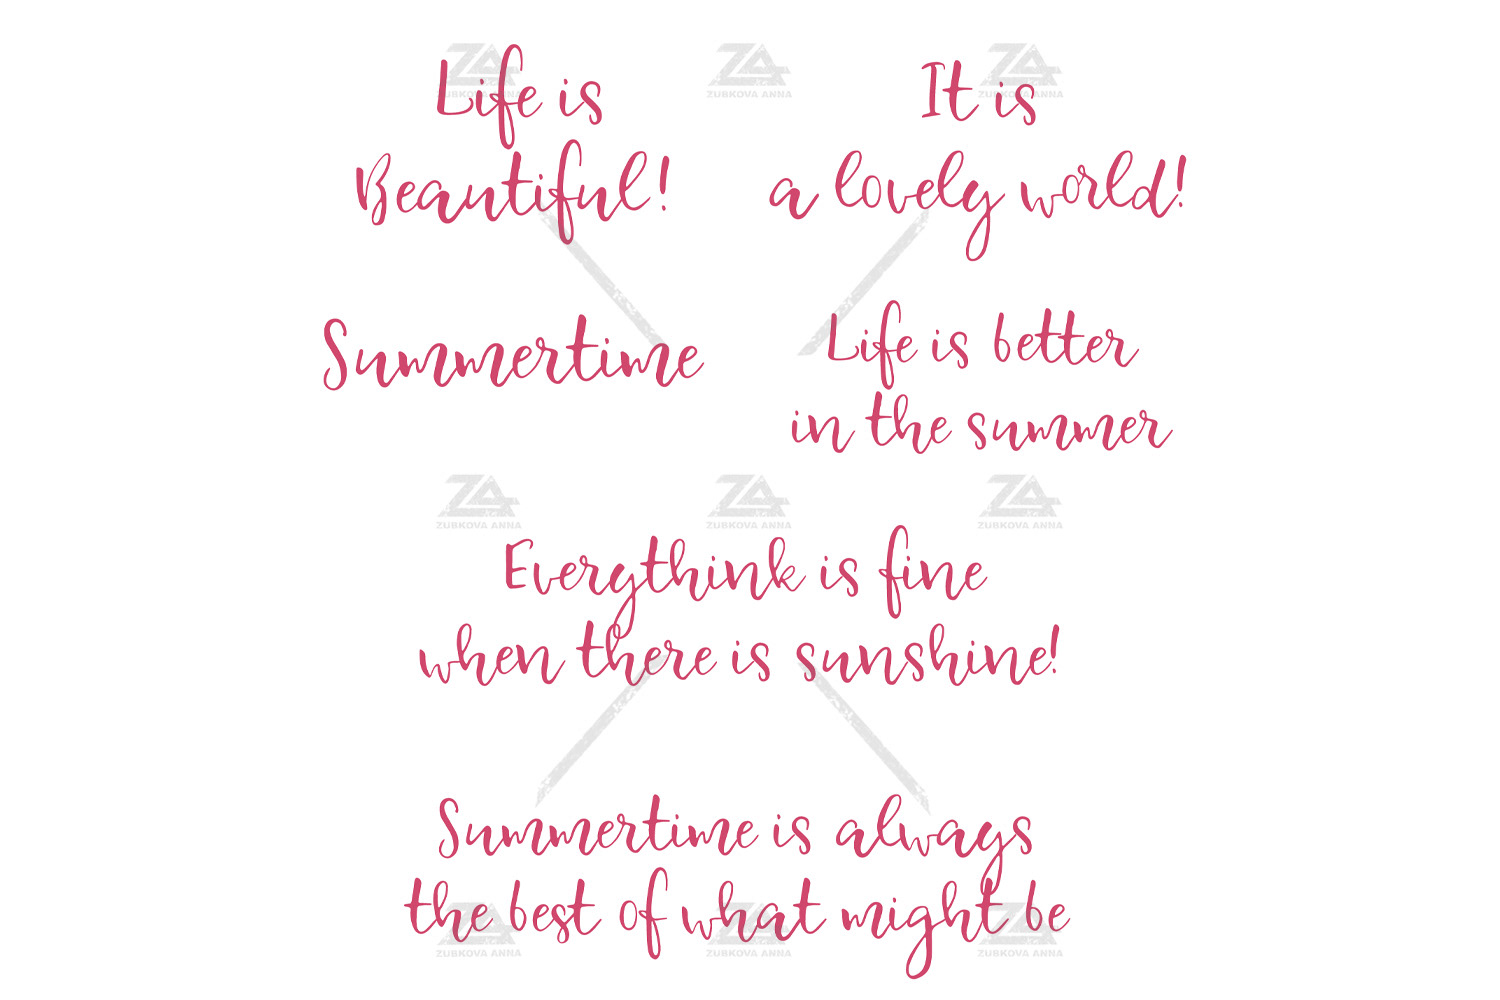 ZA ZA ZA
ZUBKOVA ANNA ZUBKOVA ANNA ZUBKOVA ANNA
Life is
Beautiful!
It is
a lovely world!
Summertime
Life is better
in the summer
ZA ZA ZA
ZUBKOVA ANNA ZUBKOVA ANNA ZUBKOVA ANNA
Everythink is fine
when there is sunshine!
Summertime is always
the best of what might be
ZA ZA ZA
ZUBKOVA ANNA ZUBKOVA ANNA ZUBKOVA ANNA